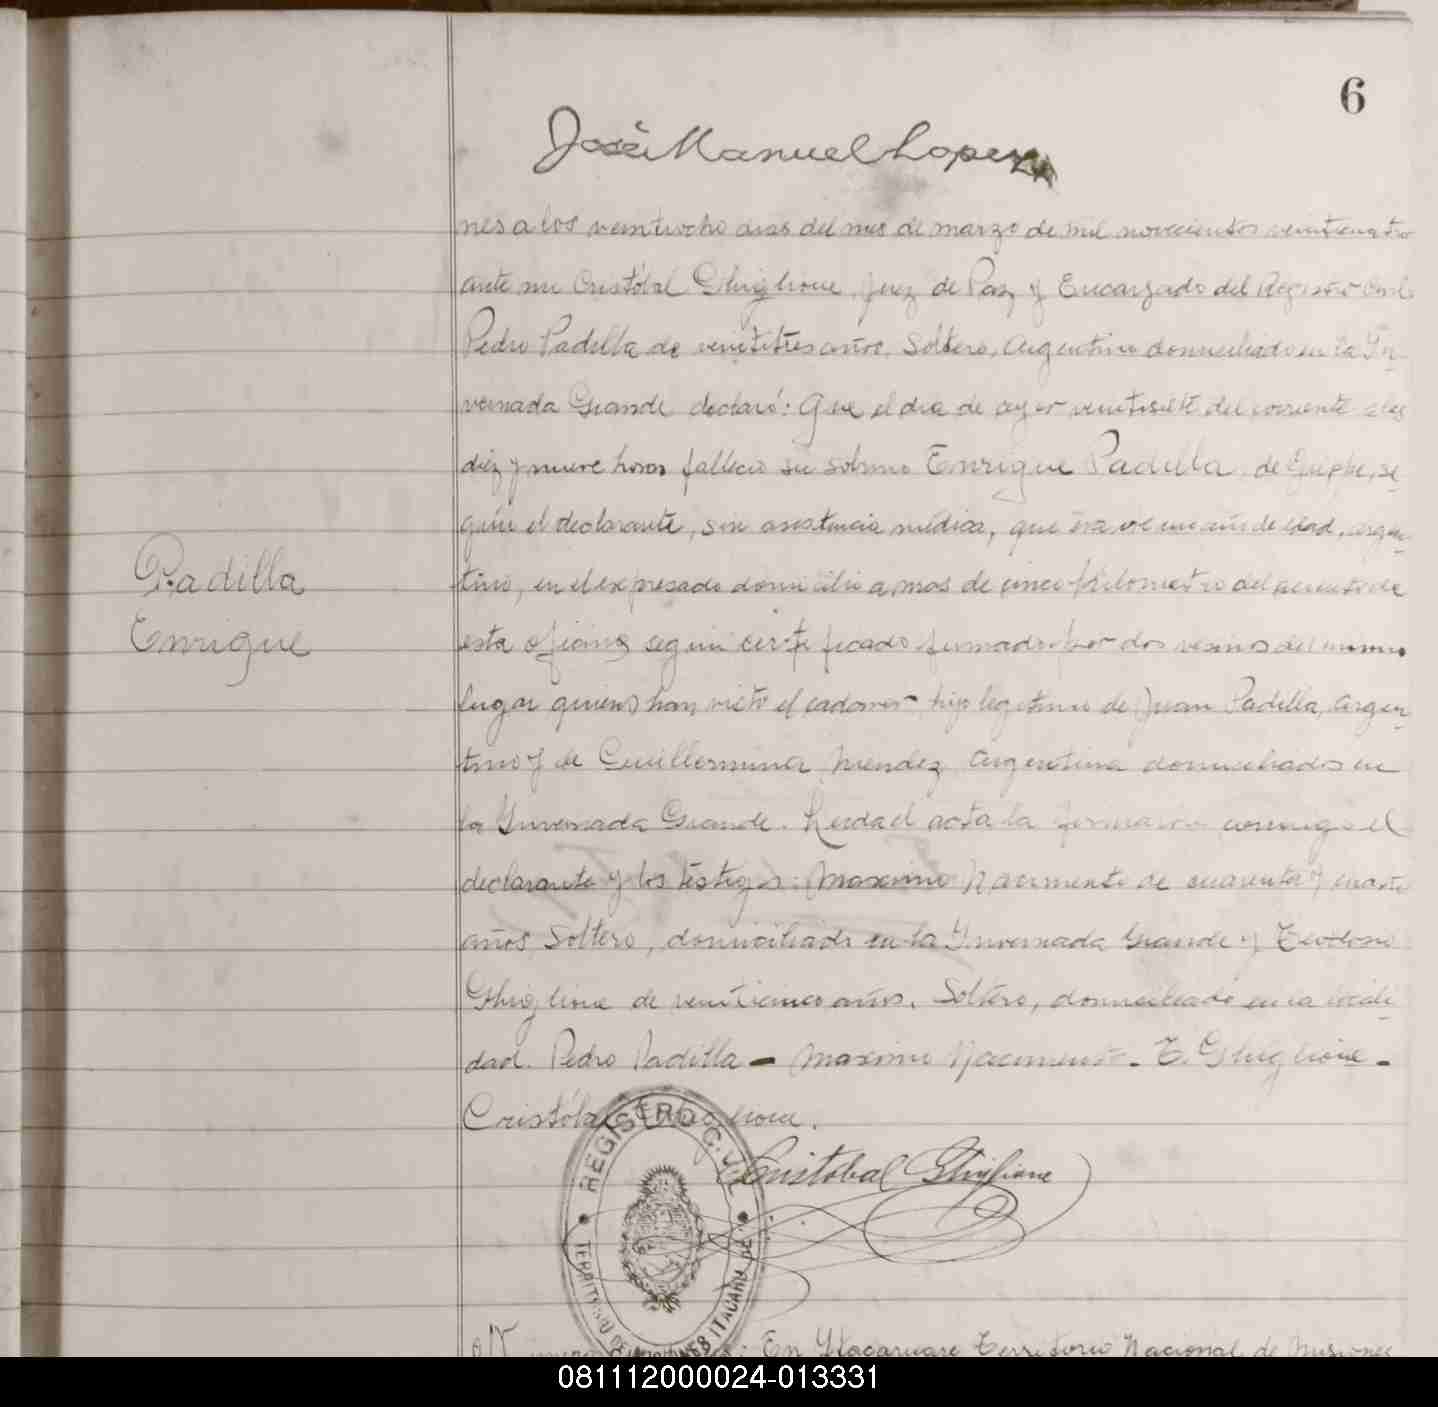 6
José Manuel Lopez
nes a los veintiocho dias del mes de marzo de mil novecientos veinticuatro
ante mi Cristóbal Ghiglione, Juez de Paz y Encargado del Registro Civil
Pedro Padilla de veintitres años, Soltero, Argentino domiciliado en la In-
vernada Grande declaró: Que el dia de ayer veintisiete del corriente a las
diez y nueve horas fallecio su sobrino Enrique Padilla, de Grippe, se-
gún el declarante, sin asistencia médica, que era de un año de edad, argen-
tino, en el expresado domicilio a mas de cinco kilometro del asiento de
esta oficina segun certificado firmado por dos vesinos del mismo
lugar quienes han visto el cadaver, hijo legitimo de Juan Padilla, argen-
tino y de Guillermina Mendez, argentina domiciliados en
la Invernada Grande. Leida el acta la firmaron conmigo el
declarante y los testigos: Maximo Nacimento de cuarenta y cuatro
años, Soltero, domiciliado en la Invernada Grande y Teodoro
Ghiglione de veinticinco años, Soltero, domiciliado en la locali-
dad. Pedro Padilla - Maximo Nacimento - T. Ghiglione -
Cristóbal Ghiglione.
Cristobal Ghiglione
Padilla
Enrique
REGISTRO CIVIL
TERRITORIO DE MISIONES ITACARUARE
En Itacaruare Territorio Nacional de Misiones
081112000024-013331